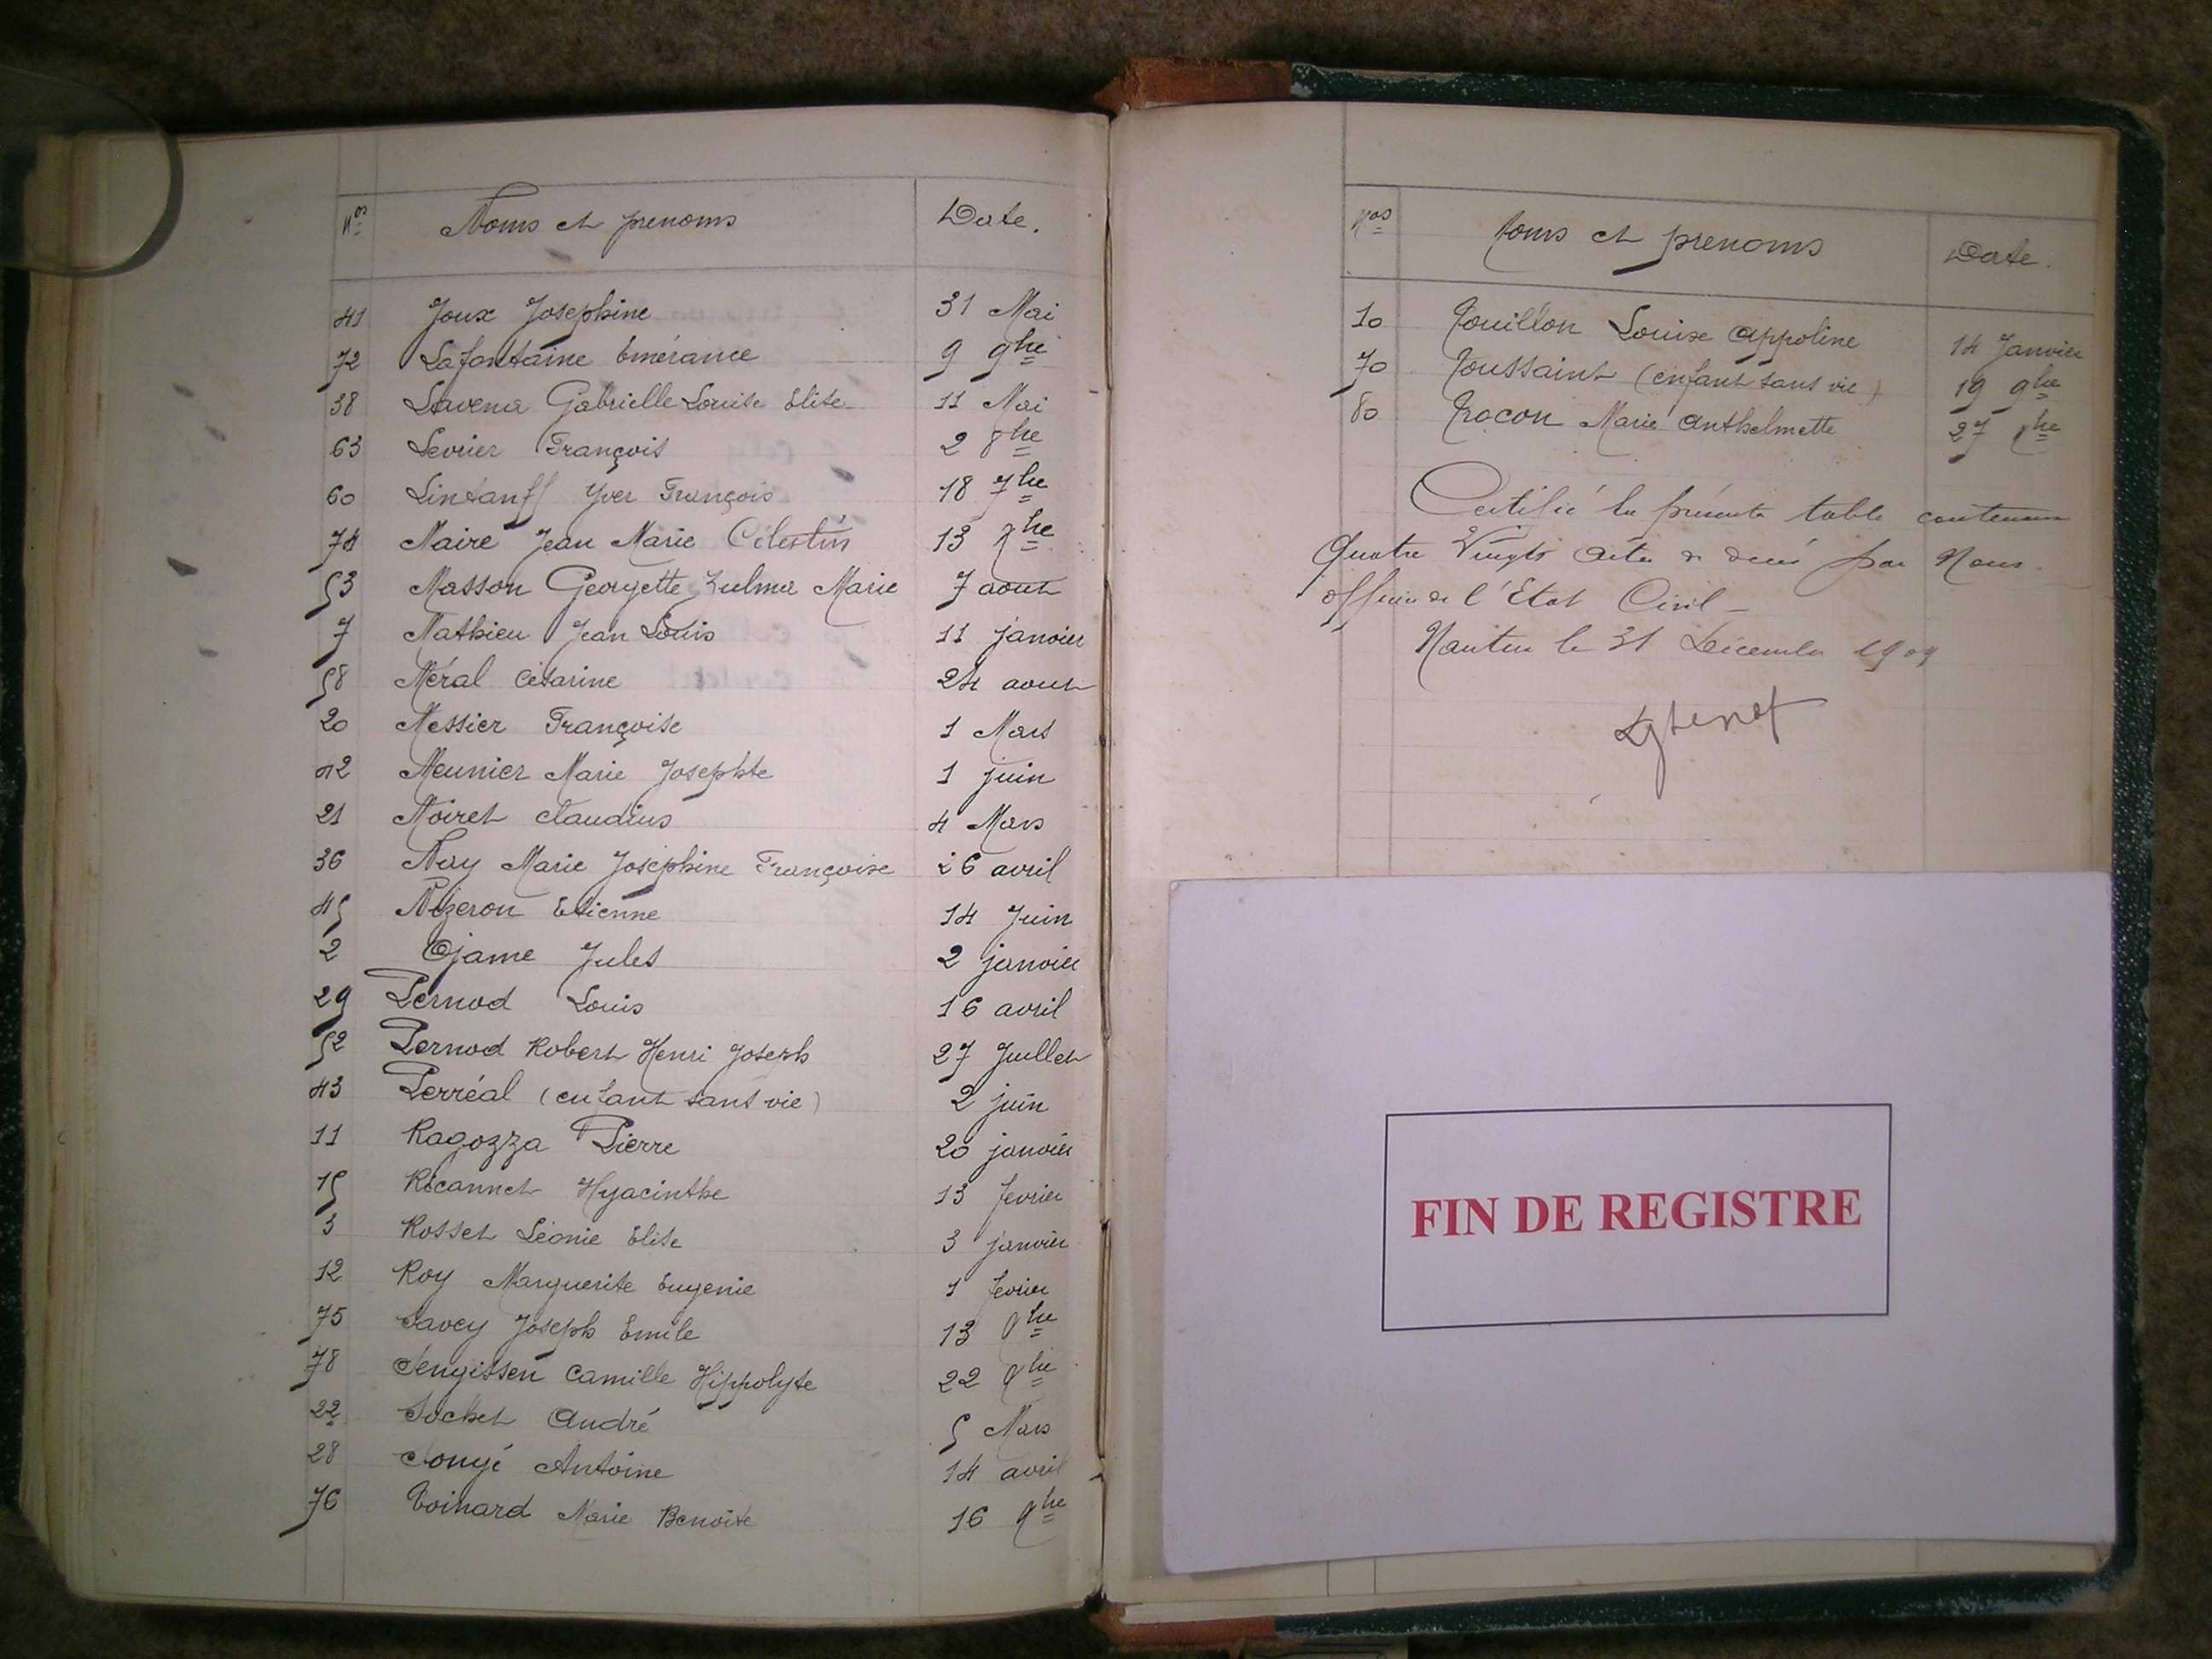 Nos Noms et prenoms Date.
41 Joux Josephine 31 Mai
72 Lafontaine Emérance 9 9bre
38 Lavena Gabrielle Louise Elise 11 Mai
63 Levrier François 2 8bre
60 Lintanff Yves François 18 7bre
74 Maire Jean Marie Célestin 13 Xbre
53 Masson Georgette Zulma Marie 7 aout
7 Mathieu Jean Louis 11 janvier
58 Méral Césarine 24 aout
20 Messier Françoise 1 Mars
42 Meunier Marie Josephte 1 juin
21 Moiret Claudius 4 Mars
36 Nay Marie Joséphine Françoise 26 avril
45 Nizeron Etienne 14 Juin
2 Ojame Jules 2 janvier
29 Pernod Louis 16 avril
52 Pernod Robert Henri Joseph 27 Juillet
43 Perréal (enfant sans vie) 2 juin
11 Ragozza Pierre 20 janvier
15 Récannet Hyacinthe 13 fevrier
3 Rosset Léonie Elise 3 janvier
12 Roy Marguerite Eugenie 1 fevrier
75 Savey Joseph Emile 13 Xbre
78 Sengissen Camille Hippolyte 22 Xbre
22 Sochet André 5 Mars
28 Songé Antoine 14 avril
76 Toinard Marie Benoite 16 Xbre
Nos Noms et prenoms Date.
10 Touillon Louise Appoline 14 Janvier
70 Toussaint (enfant sans vie) 19 9bre
80 Trocon Marie Anthelmette 27 Xbre
Certifié la présente table contenant
Quatre Vingts actes de décès par Nous
officier de l'Etat Civil
Nantua le 31 Décembre 1909
FIN DE REGISTRE